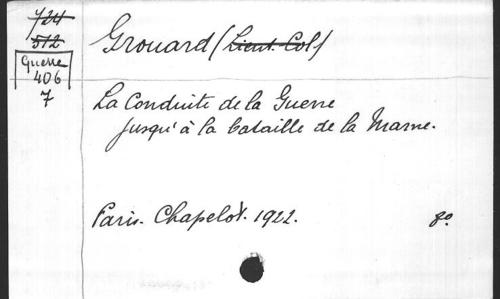 724
512
Guerre
406
7
Grouard (Lieut. Col)
La Conduite de la Guerre
jusqu'à la bataille de la Marne.
Paris. Chapelot. 1922. 8o.